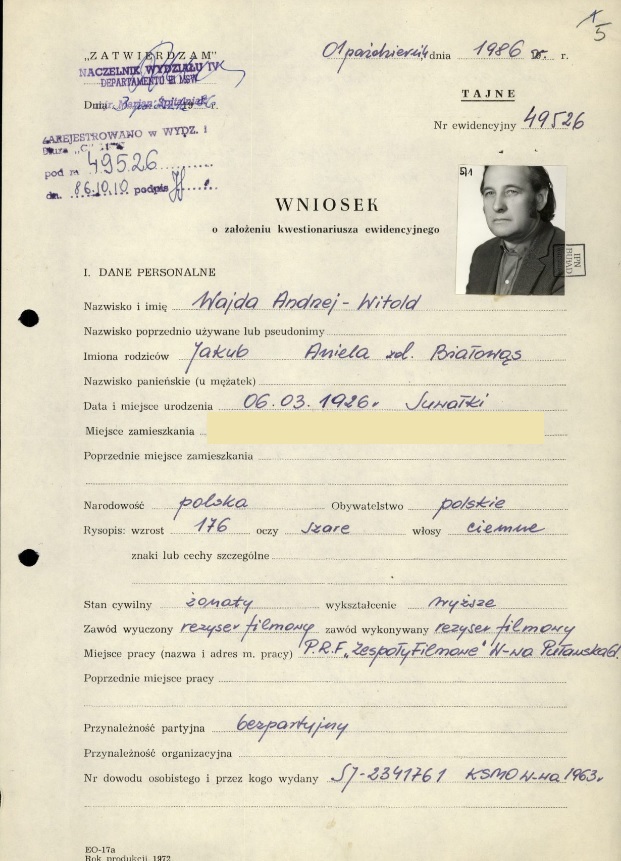 5
01 października dnia 1986 r.
„ZATWIERDZAM"
NACZELNIK WYDZIAŁU IV
DEPARTAMENTU III MSW
Dnia
TAJNE
Nr ewidencyjny 49526
ZAREJESTROWANO w WYDZ. I
Biura „C"
pod nr 49526
dn. 86.10.10 podpis
WNIOSEK
o założeniu kwestionariusza ewidencyjnego
I. DANE PERSONALNE
Nazwisko i imię Wajda Andrzej-Witold
Nazwisko poprzednio używane lub pseudonimy
Imiona rodziców Jakub Aniela zd. Białowąs
Nazwisko panieńskie (u mężatek)
Data i miejsce urodzenia 06.03.1926r Suwałki
Miejsce zamieszkania
Poprzednie miejsce zamieszkania
Narodowość polska Obywatelstwo polskie
Rysopis: wzrost 176 oczy szare włosy ciemne
znaki lub cechy szczególne
Stan cywilny żonaty wykształcenie wyższe
Zawód wyuczony reżyser filmowy zawód wykonywany reżyser filmowy
Miejsce pracy (nazwa i adres m. pracy) P.R.F. „Zespoły Filmowe" W-wa Puławska 61
Poprzednie miejsce pracy
Przynależność partyjna bezpartyjny
Przynależność organizacyjna
Nr dowodu osobistego i przez kogo wydany SJ-2341761 KSMO W-wa 1963r
EO-17a
Rok produkcji 1972